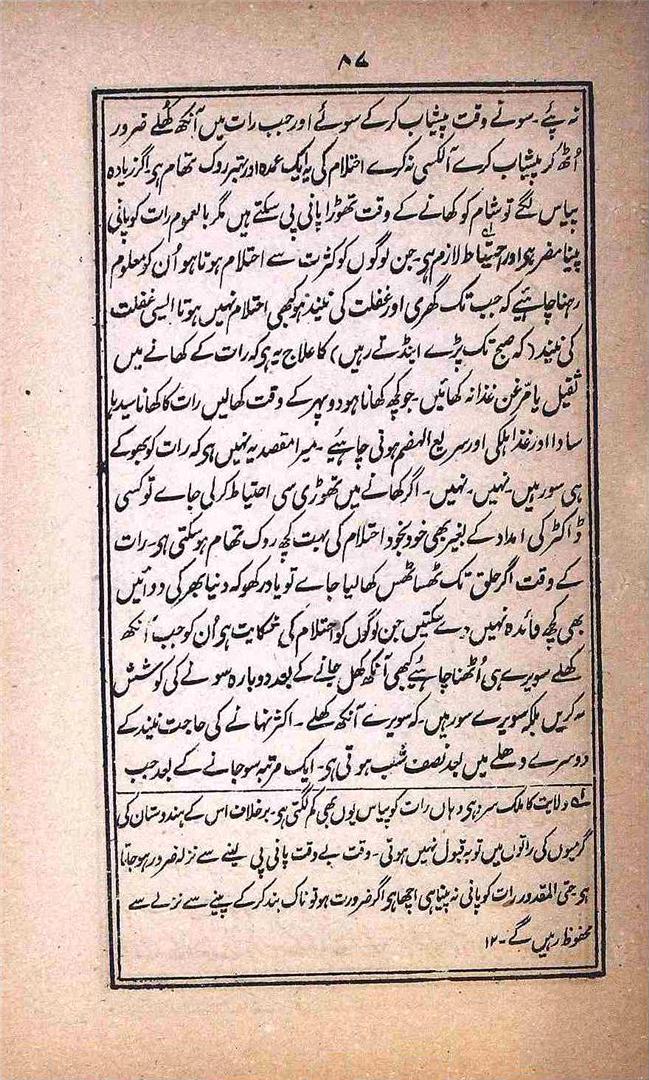 ۸۷
نہ پئے۔ سوتے وقت پیشاب کرکے سوئے اور جب رات میں آنکھ کُھلے ضرور
اُٹھ کر پیشاب کرے آلکسی نہ کرے احتلام کی یہ ایک عمدہ اور بہتر روک تھام ہی۔ اگر زیادہ
پیاس لگے تو شام کو کھانے کے وقت تھوڑا پانی پی سکتے ہیں مگر بالعموم رات کو پانی
پینا مضر ہی اور احتیاط لازم ہی۔ جن لوگوں کو کثرت سے احتلام ہوتا ہو اُن کو معلوم
رہنا چاہئیے کہ جب تک گھری اور غفلت کی نیند نہو کبھی احتلام نہیں ہوتا ایسی غفلت
کی نیند (کہ صبح تک پڑے اینڈتے رہیں) کا علاج یہ ہی کہ رات کے کھانے میں
ثقیل یا مرّغن غذا نہ کھائیں۔ جو کچھ کھانا ہو دوپہر کے وقت کھالیں رات کا کھانا سیدہا
سادا اور غذا ہلکی اور سریع الہضم ہونی چاہیے۔ میرا مقصد یہ نہیں ہی کہ رات کو بھوکے
ہی سو رہیں۔ نہیں۔ نہیں۔ اگر کھانے میں تھوڑی سی احتیاط کرلی جاے تو کسی
ڈاکٹر کی امداد کے بغیر بھی خود بخود احتلام کی بہت کچھ روک تھام ہوسکتی ہی۔ رات
کے وقت اگر حلق تک ٹھساٹھس کھالیا جاے تو یاد رکھو کہ دنیا بھر کی دوائیں
بھی کچھ فائدہ نہیں دے سکتیں جن لوگوں کو احتلام کی شکایت ہو اُن کو جب آنکھ
کھلے سویرے ہی اُٹھنا چاہئیے کبھی آنکھ کھل جانے کے بعد دوبارہ سونے کی کوشش
نہ کریں بلکہ سویرے سو رہیں۔ کہ سویرے آنکھ کھلے۔ اکثر نہانے کی حاجت نیند کے
دوسرے دھلے میں بعد نصف شب ہوتی ہی۔ ایک مرتبہ سوجانے کے بعد جب
ولایت کا ملک سرد ہی وہاں رات کو پیاس یوں بھی کم لگتی ہی۔ برخلاف اس کے ہندوستان کی
گرمیوں کی راتوں میں توبہ قبول نہیں ہوتی۔ وقت بے وقت پانی پی لینے سے نزلہ ضرور ہوجاتا
ہو حتی المقدور رات کو پانی نہ پینا ہی اچھا ہو اگر ضرورت ہو تو ناک بند کرکے پینے سے نزلے سے
محفوظ رہیں گے۔ ۱۲